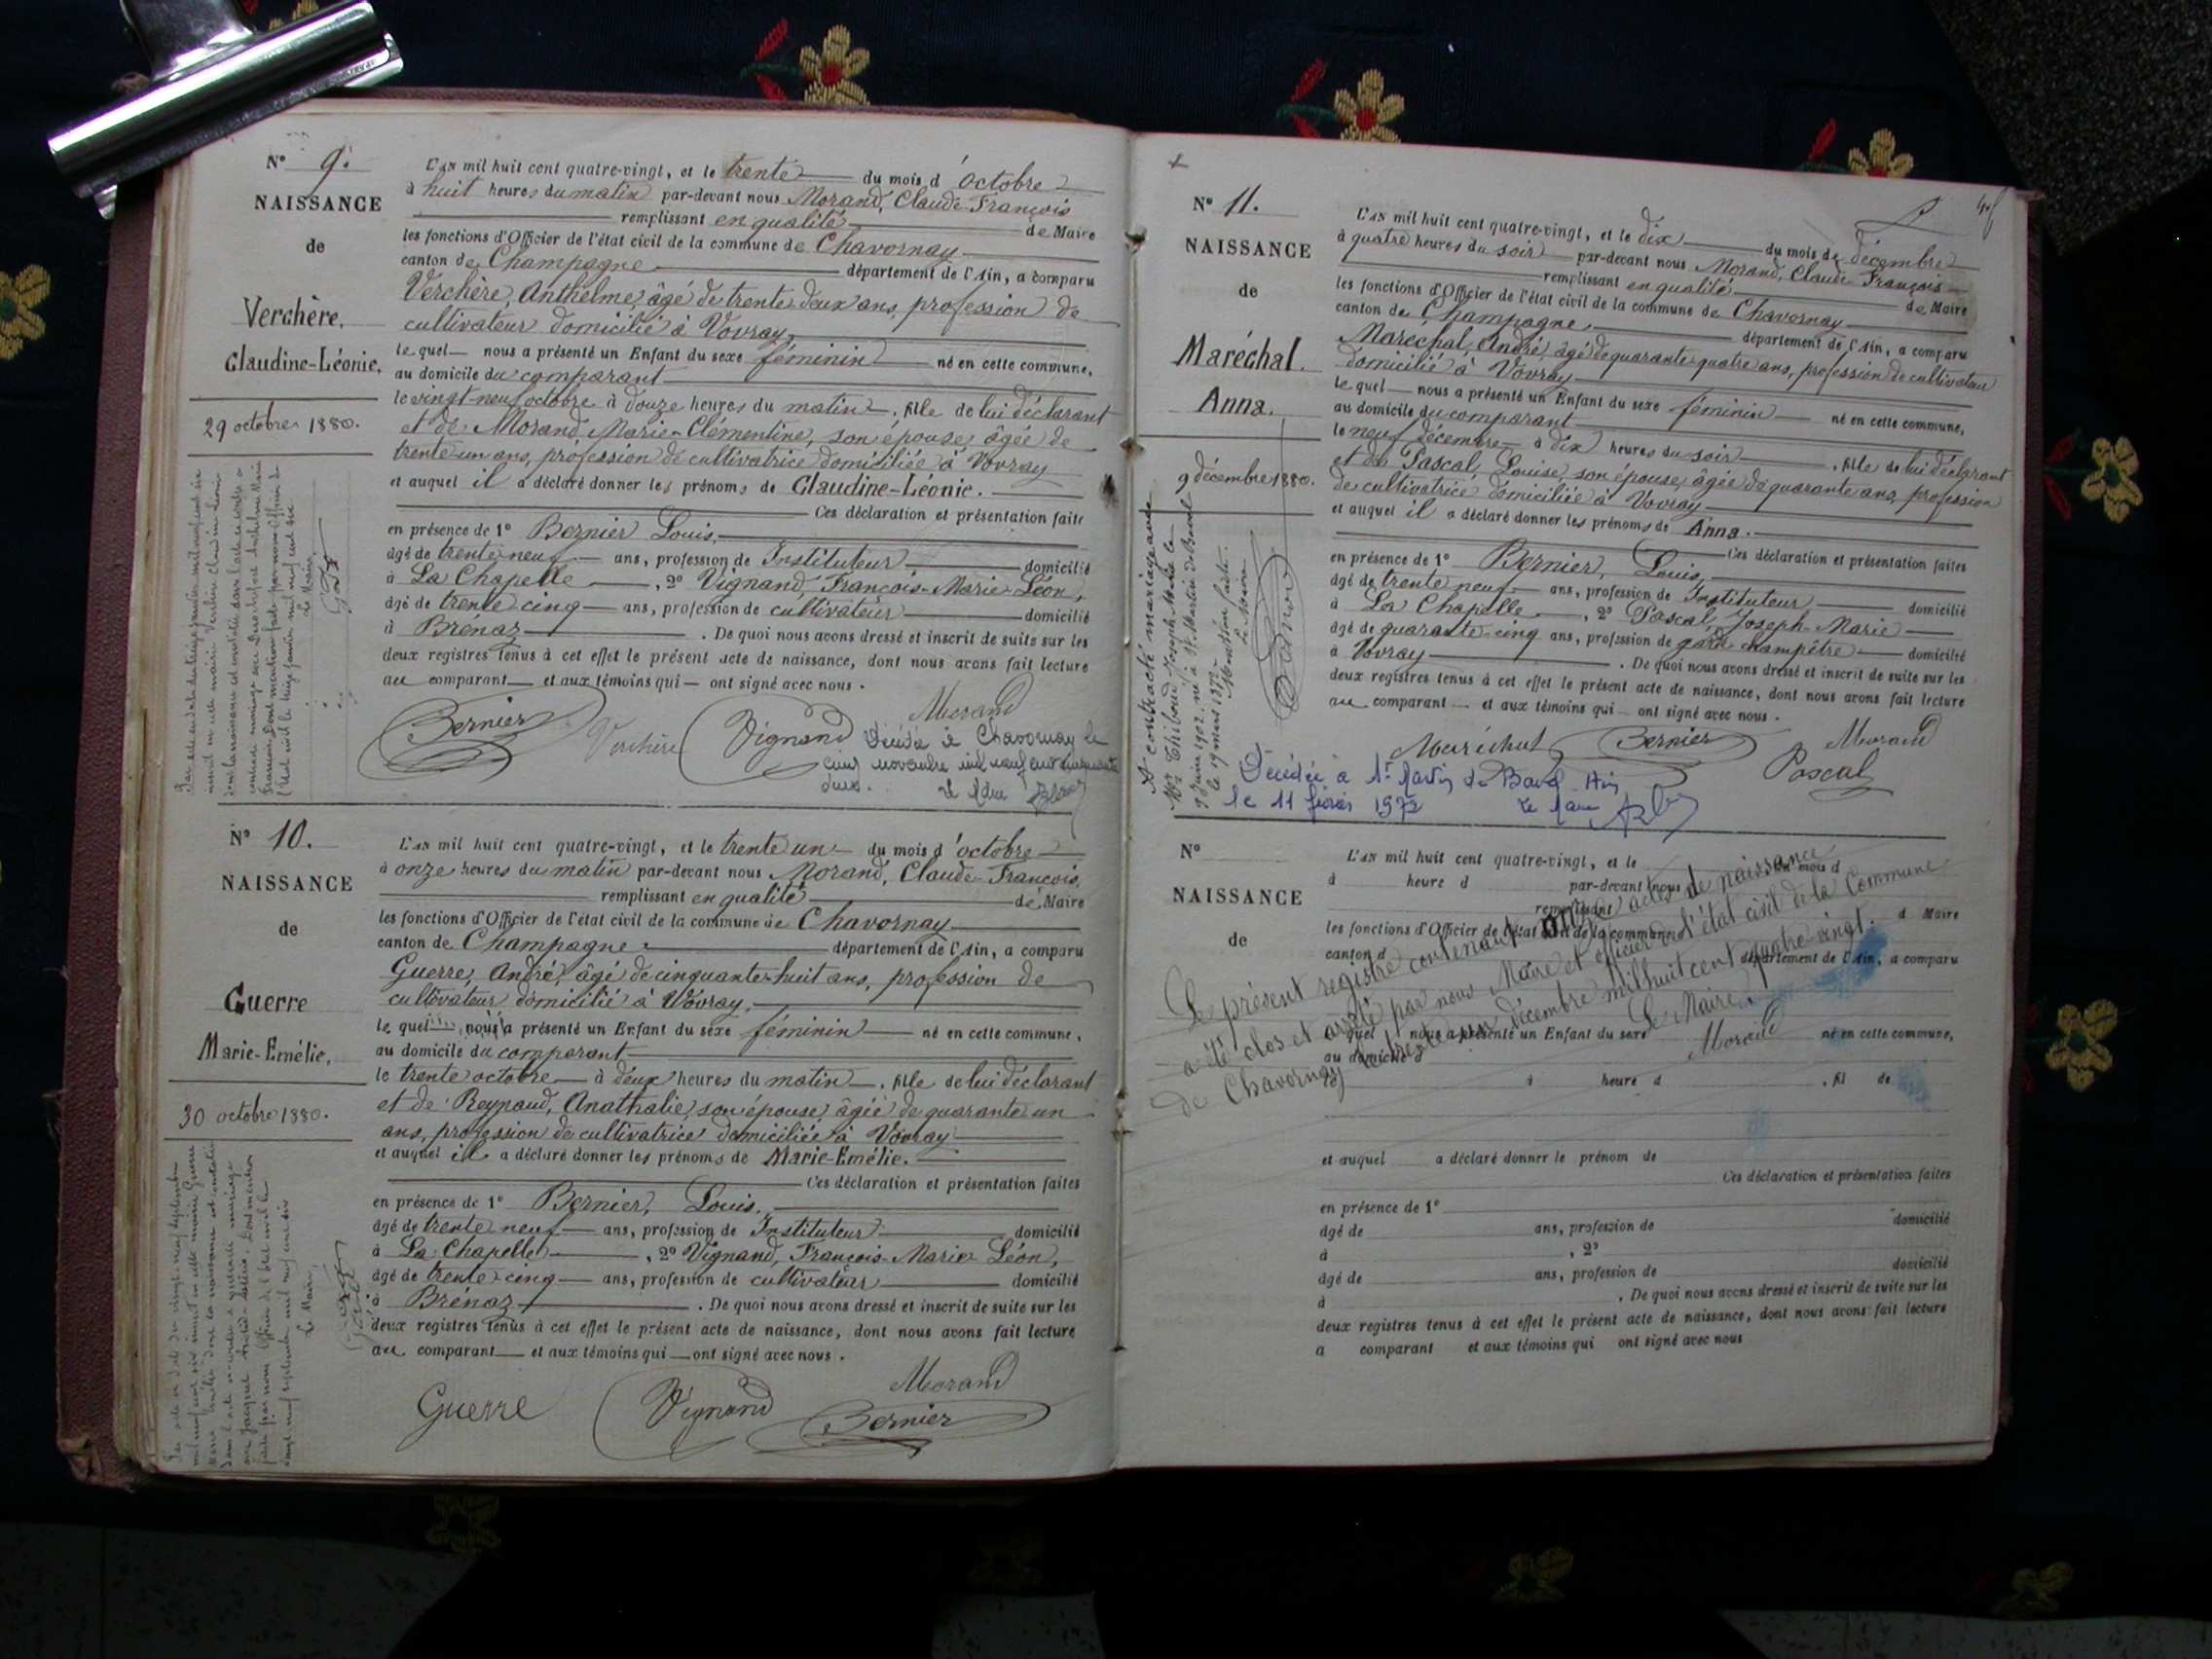 N° 9.
NAISSANCE
de
Verchère,
Claudine-Léonie,
29 octobre 1880.
L'an mil huit cent quatre-vingt, et le trente du mois d'octobre
à huit heures du matin par-devant nous Morand, Claude-François
remplissant en qualité de Maire
les fonctions d'Officier de l'état civil de la commune de Chavornay
canton de Champagne département de l'Ain, a comparu
Verchère, Anthelme, âgé de trente-deux ans, profession de
cultivateur domicilié à Vovray,
lequel nous a présenté un Enfant du sexe féminin né en cette commune,
au domicile du comparant
le vingt-neuf octobre à douze heures du matin, fille de lui déclarant
et de Morand, Marie-Clémentine, son épouse, âgée de
trente-un ans, profession de cultivatrice domiciliée à Vovray
et auquel il a déclaré donner les prénoms de Claudine-Léonie.
Ces déclaration et présentation faite
en présence de 1° Bernier Louis,
âgé de trente-neuf ans, profession de Instituteur, domicilié
à La Chapelle, 2° Vignand, François-Marie-Léon,
âgé de trente-cinq ans, profession de cultivateur domicilié
à Brénaz. De quoi nous avons dressé et inscrit de suite sur les
deux registres tenus à cet effet le présent acte de naissance, dont nous avons fait lecture
au comparant et aux témoins qui ont signé avec nous.
Bernier Verchère Vignand Morand
Décédée à Chavornay le
cinq novembre mil neuf cent cinquante
deux. Le Maire
N° 10.
NAISSANCE
de
Guerre
Marie-Emélie,
30 octobre 1880.
L'an mil huit cent quatre-vingt, et le trente un du mois d'octobre
à onze heures du matin par-devant nous Morand, Claude-François,
remplissant en qualité de Maire
les fonctions d'Officier de l'état civil de la commune de Chavornay
canton de Champagne département de l'Ain, a comparu
Guerre, André, âgé de cinquante-huit ans, profession de
cultivateur domicilié à Vovray,
lequel nous a présenté un Enfant du sexe féminin né en cette commune,
au domicile du comparant
le trente octobre à deux heures du matin, fille de lui déclarant
et de Reynaud, Anathalie, son épouse, âgée de quarante un
ans, profession de cultivatrice domiciliée à Vovray
et auquel il a déclaré donner les prénoms de Marie-Emélie.
Ces déclaration et présentation faites
en présence de 1° Bernier, Louis,
âgé de trente neuf ans, profession de Instituteur domicilié
à La Chapelle, 2° Vignand, François-Marie Léon,
âgé de trente-cinq ans, profession de cultivateur domicilié
à Brénaz. De quoi nous avons dressé et inscrit de suite sur les
deux registres tenus à cet effet le présent acte de naissance, dont nous avons fait lecture
au comparant et aux témoins qui ont signé avec nous.
Guerre Vignand Morand
Bernier
N° 11.
NAISSANCE
de
Maréchal.
Anna.
9 décembre 1880.
A contracté mariage avec
Mr Thiboud Joseph Marie le
9 Juin 1902. né à St Martin de Bavel
le 19 mars 1872.
Mention faite.
Le Maire
L'an mil huit cent quatre-vingt, et le dix du mois de décembre
à quatre heures du soir par-devant nous Morand, Claude François
remplissant en qualité de Maire
les fonctions d'Officier de l'état civil de la commune de Chavornay
canton de Champagne, département de l'Ain, a comparu
Maréchal, André, âgé de quarante-quatre ans, profession de cultivateur
domicilié à Vovray
lequel nous a présenté un Enfant du sexe féminin né en cette commune,
au domicile du comparant
le neuf décembre à dix heures du soir, fille de lui déclarant
et de Pascal, Louise, son épouse, âgée de quarante ans, profession
de cultivatrice domiciliée à Vovray
et auquel il a déclaré donner les prénoms de Anna.
Ces déclaration et présentation faites
en présence de 1° Bernier, Louis,
âgé de trente neuf ans, profession de Instituteur, domicilié
à La Chapelle, 2° Pascal, Joseph-Marie
âgé de quarante-cinq ans, profession de garde champêtre domicilié
à Vovray. De quoi nous avons dressé et inscrit de suite sur les
deux registres tenus à cet effet le présent acte de naissance, dont nous avons fait lecture
au comparant et aux témoins qui ont signé avec nous.
Maréchal Bernier Morand
Pascal
Décédée à St Martin de Bavel Ain
le 11 février 1972 Le Maire
N°
NAISSANCE
de
L'an mil huit cent quatre-vingt, et le du mois d
à heure d par-devant nous
remplissant
les fonctions d'Officier de l'état civil de la commune d Maire
canton d département de l'Ain, a comparu
Le présent registre contenant onze actes de naissance
a été clos et arrêté par nous Maire et officier de l'état civil de la Commune
de Chavornay le trente-un décembre mil huit cent quatre-vingt.
Le Maire,
Morand
lequel nous a présenté un Enfant du sexe né en cette commune,
au domicile d
le à heure d, fil de
et auquel a déclaré donner le prénom de
Ces déclaration et présentation faites
en présence de 1°
âgé de ans, profession de domicilié
à , 2°
âgé de ans, profession de domicilié
à . De quoi nous avons dressé et inscrit de suite sur les
deux registres tenus à cet effet le présent acte de naissance, dont nous avons fait lecture
a comparant et aux témoins qui ont signé avec nous